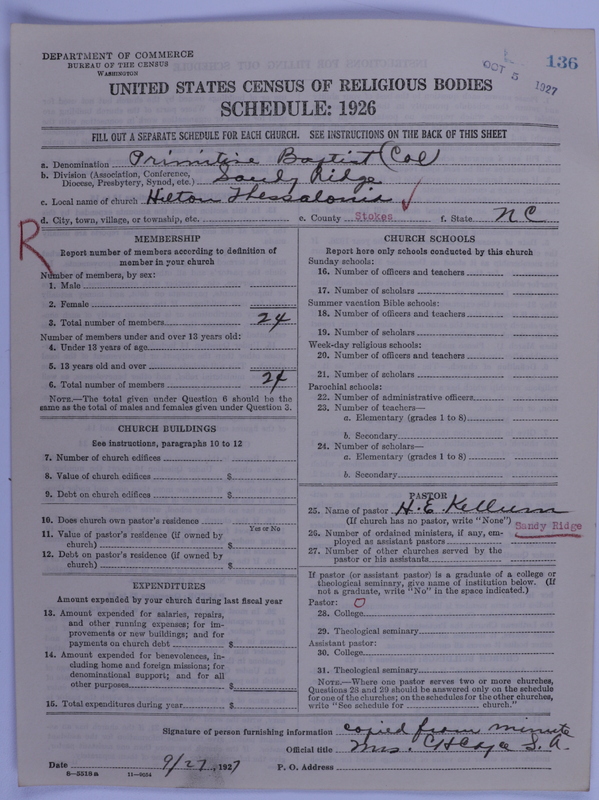 DEPARTMENT OF COMMERCE
BUREAU OF THE CENSUS
WASHINGTON
OCT 5 1927
136
UNITED STATES CENSUS OF RELIGIOUS BODIES
SCHEDULE: 1926
FILL OUT A SEPARATE SCHEDULE FOR EACH CHURCH. SEE INSTRUCTIONS ON THE BACK OF THIS SHEET
a. Denomination Primitive Baptist (Col)
b. Division (Association, Conference, Diocese, Presbytery, Synod, etc.) Sandy Ridge
c. Local name of church Hilton Thessalonia
d. City, town, village, or township, etc. e. County Stokes f. State NC
R
MEMBERSHIP
Report number of members according to definition of
member in your church
Number of members, by sex:
1. Male
2. Female
3. Total number of members 24
Number of members under and over 13 years old:
4. Under 13 years of age
5. 13 years old and over
6. Total number of members 24
NOTE.—The total given under Question 6 should be the
same as the total of males and females given under Question 3.
CHURCH BUILDINGS
See instructions, paragraphs 10 to 12
7. Number of church edifices
8. Value of church edifices $
9. Debt on church edifices $
10. Does church own pastor's residence
Yes or No
11. Value of pastor's residence (if owned by
church) $
12. Debt on pastor's residence (if owned by
church) $
EXPENDITURES
Amount expended by your church during last fiscal year
13. Amount expended for salaries, repairs,
and other running expenses; for im-
provements or new buildings; and for
payments on church debt $
14. Amount expended for benevolences, in-
cluding home and foreign missions; for
denominational support; and for all
other purposes $
15. Total expenditures during year $
CHURCH SCHOOLS
Report here only schools conducted by this church
Sunday schools:
16. Number of officers and teachers
17. Number of scholars
Summer vacation Bible schools:
18. Number of officers and teachers
19. Number of scholars
Week-day religious schools:
20. Number of officers and teachers
21. Number of scholars
Parochial schools:
22. Number of administrative officers
23. Number of teachers—
a. Elementary (grades 1 to 8)
b. Secondary
24. Number of scholars—
a. Elementary (grades 1 to 8)
b. Secondary
PASTOR
25. Name of pastor H. E. Kellum
(If church has no pastor, write "None") Sandy Ridge
26. Number of ordained ministers, if any, em-
ployed as assistant pastors
27. Number of other churches served by the
pastor or his assistants
If pastor (or assistant pastor) is a graduate of a college or
theological seminary, give name of institution below. (If
not a graduate, write "No" in the space indicated.)
Pastor:
28. College
29. Theological seminary
Assistant pastor:
30. College
31. Theological seminary
NOTE.—Where one pastor serves two or more churches,
Questions 28 and 29 should be answered only on the schedule
for one of the churches; on the schedules for the other churches,
write "See schedule for church."
Signature of person furnishing information copied from minute
Official title Mrs. S. A.
Date 9/27, 1927 P. O. Address
6-5516a 11-9034